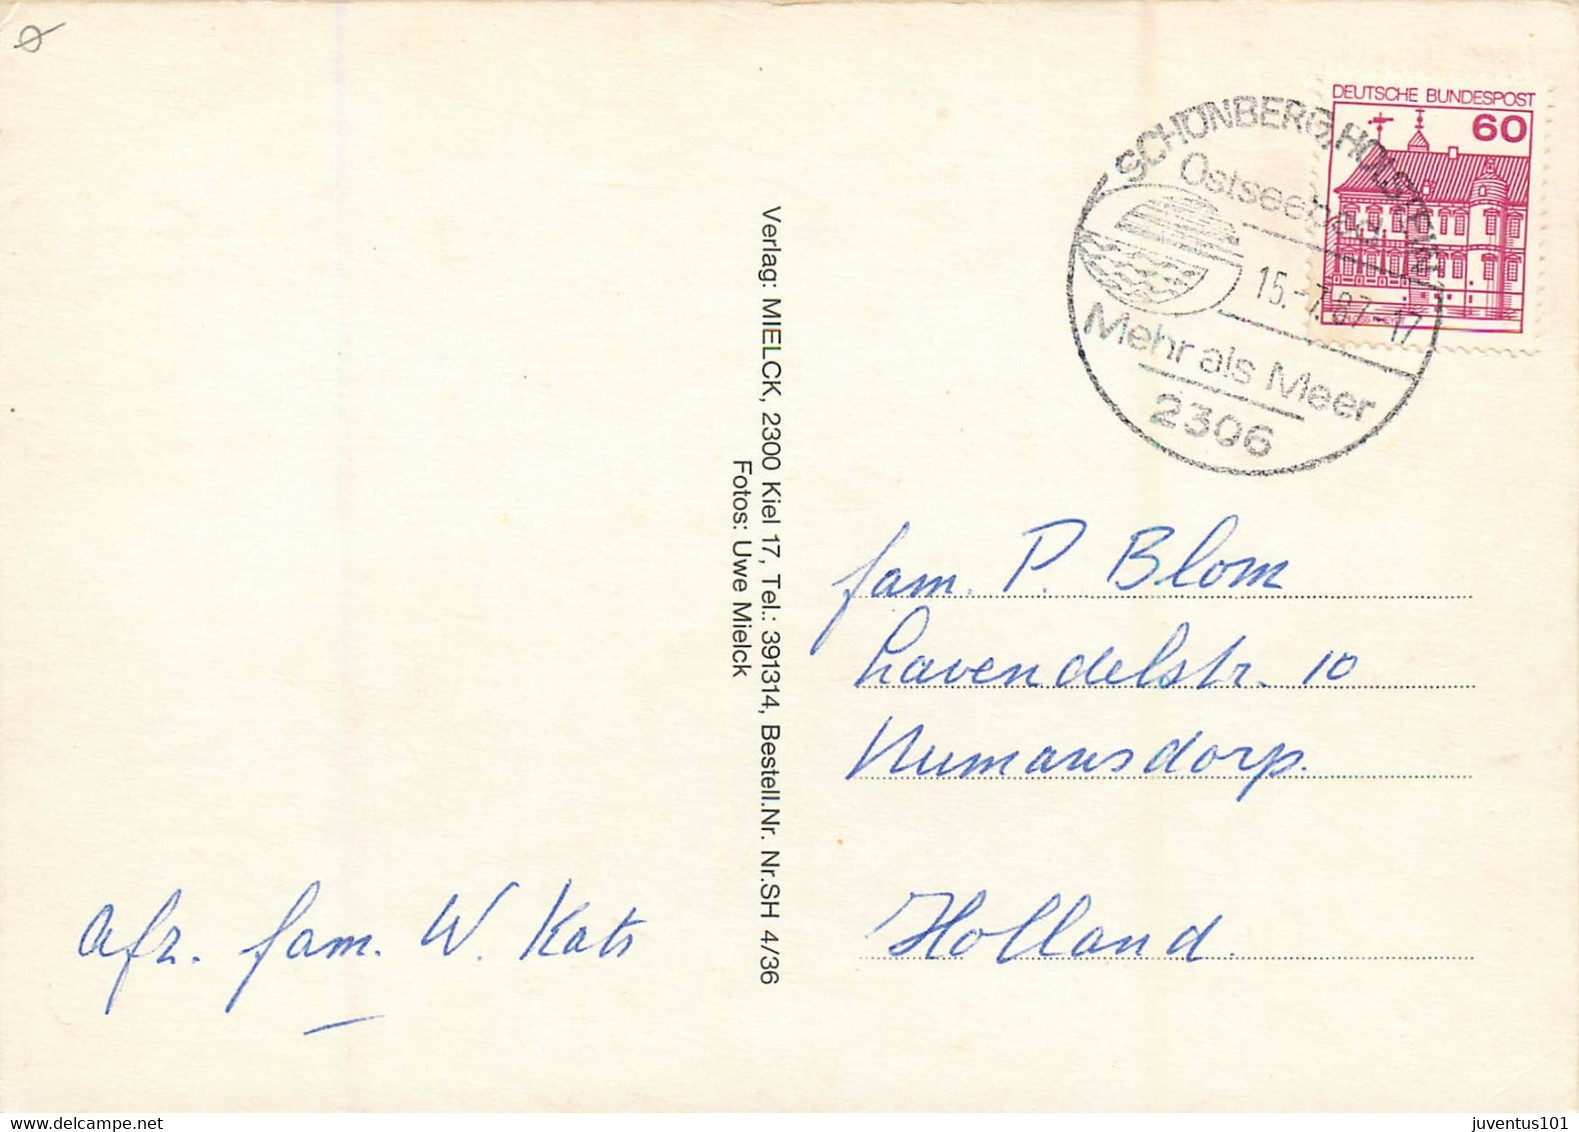 DEUTSCHE BUNDESPOST
60
SCHÖNBERG, HOLSTEIN
Ostseebad
15.-7.87-17
Mehr als Meer
2306
Verlag: MIELCK, 2300 Kiel 17, Tel.: 391314, Bestell.Nr. Nr.SH 4/36
Fotos: Uwe Mielck
fam. P. Blom
Lavendelstr. 10
Numansdorp.
Holland.
afz. fam. W. Kats
juventus101